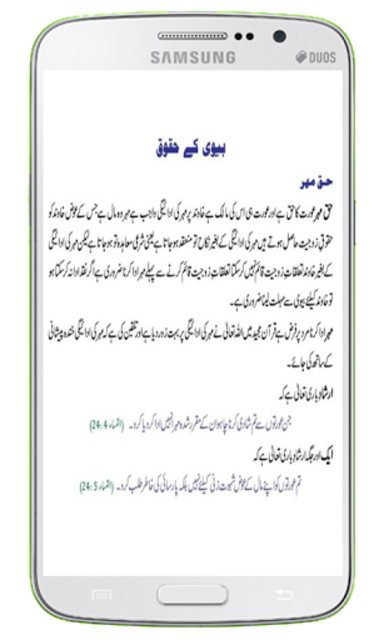 SAMSUNG
DUOS
بیوی کے حقوق
حق مہر
حق مہر عورت کا حق ہے اور عورت ہی اس کی مالک ہے خاوند پر مہر کی ادائیگی واجب ہے مہر وہ مال ہے جس کے عوض خاوند کو
حقوق زوجیت حاصل ہوتے ہیں مہر کی ادائیگی کے بغیر نکاح تو منعقد ہو جاتا ہے یعنی شرعی معاہدہ تو ہو جاتا ہے لیکن مہر کی ادائیگی
کے بغیر خاوند تعلقات زوجیت قائم نہیں کر سکتا تعلقات زوجیت قائم کرنے سے پہلے مہر ادا کرنا ضروری ہے اگر نقد ادا نہ کر سکتا ہو
تو خاوند کیلئے بیوی سے مہلت لینا ضروری ہے۔
مہر ادا کرنا مرد پر فرض ہے قرآن مجید میں اللہ تعالیٰ نے مہر کی ادائیگی پر بہت زور دیا ہے اور تلقین کی ہے کہ مہر کی ادائیگی خندہ پیشانی
کے ساتھ کی جائے۔
ارشاد باری تعالیٰ ہے کہ
جن عورتوں سے تم شادی کرنا چاہو ان کے مقرر شدہ مہر انہیں ادا کر دیا کرو۔ (النساء 4:24)
ایک اور جگہ ارشاد باری تعالیٰ ہے کہ
تم عورتوں کو اپنے مال کے عوض شہوت زنی کیلئے نہیں بلکہ پارسائی کی خاطر طلب کرو۔ (النساء 5:24)